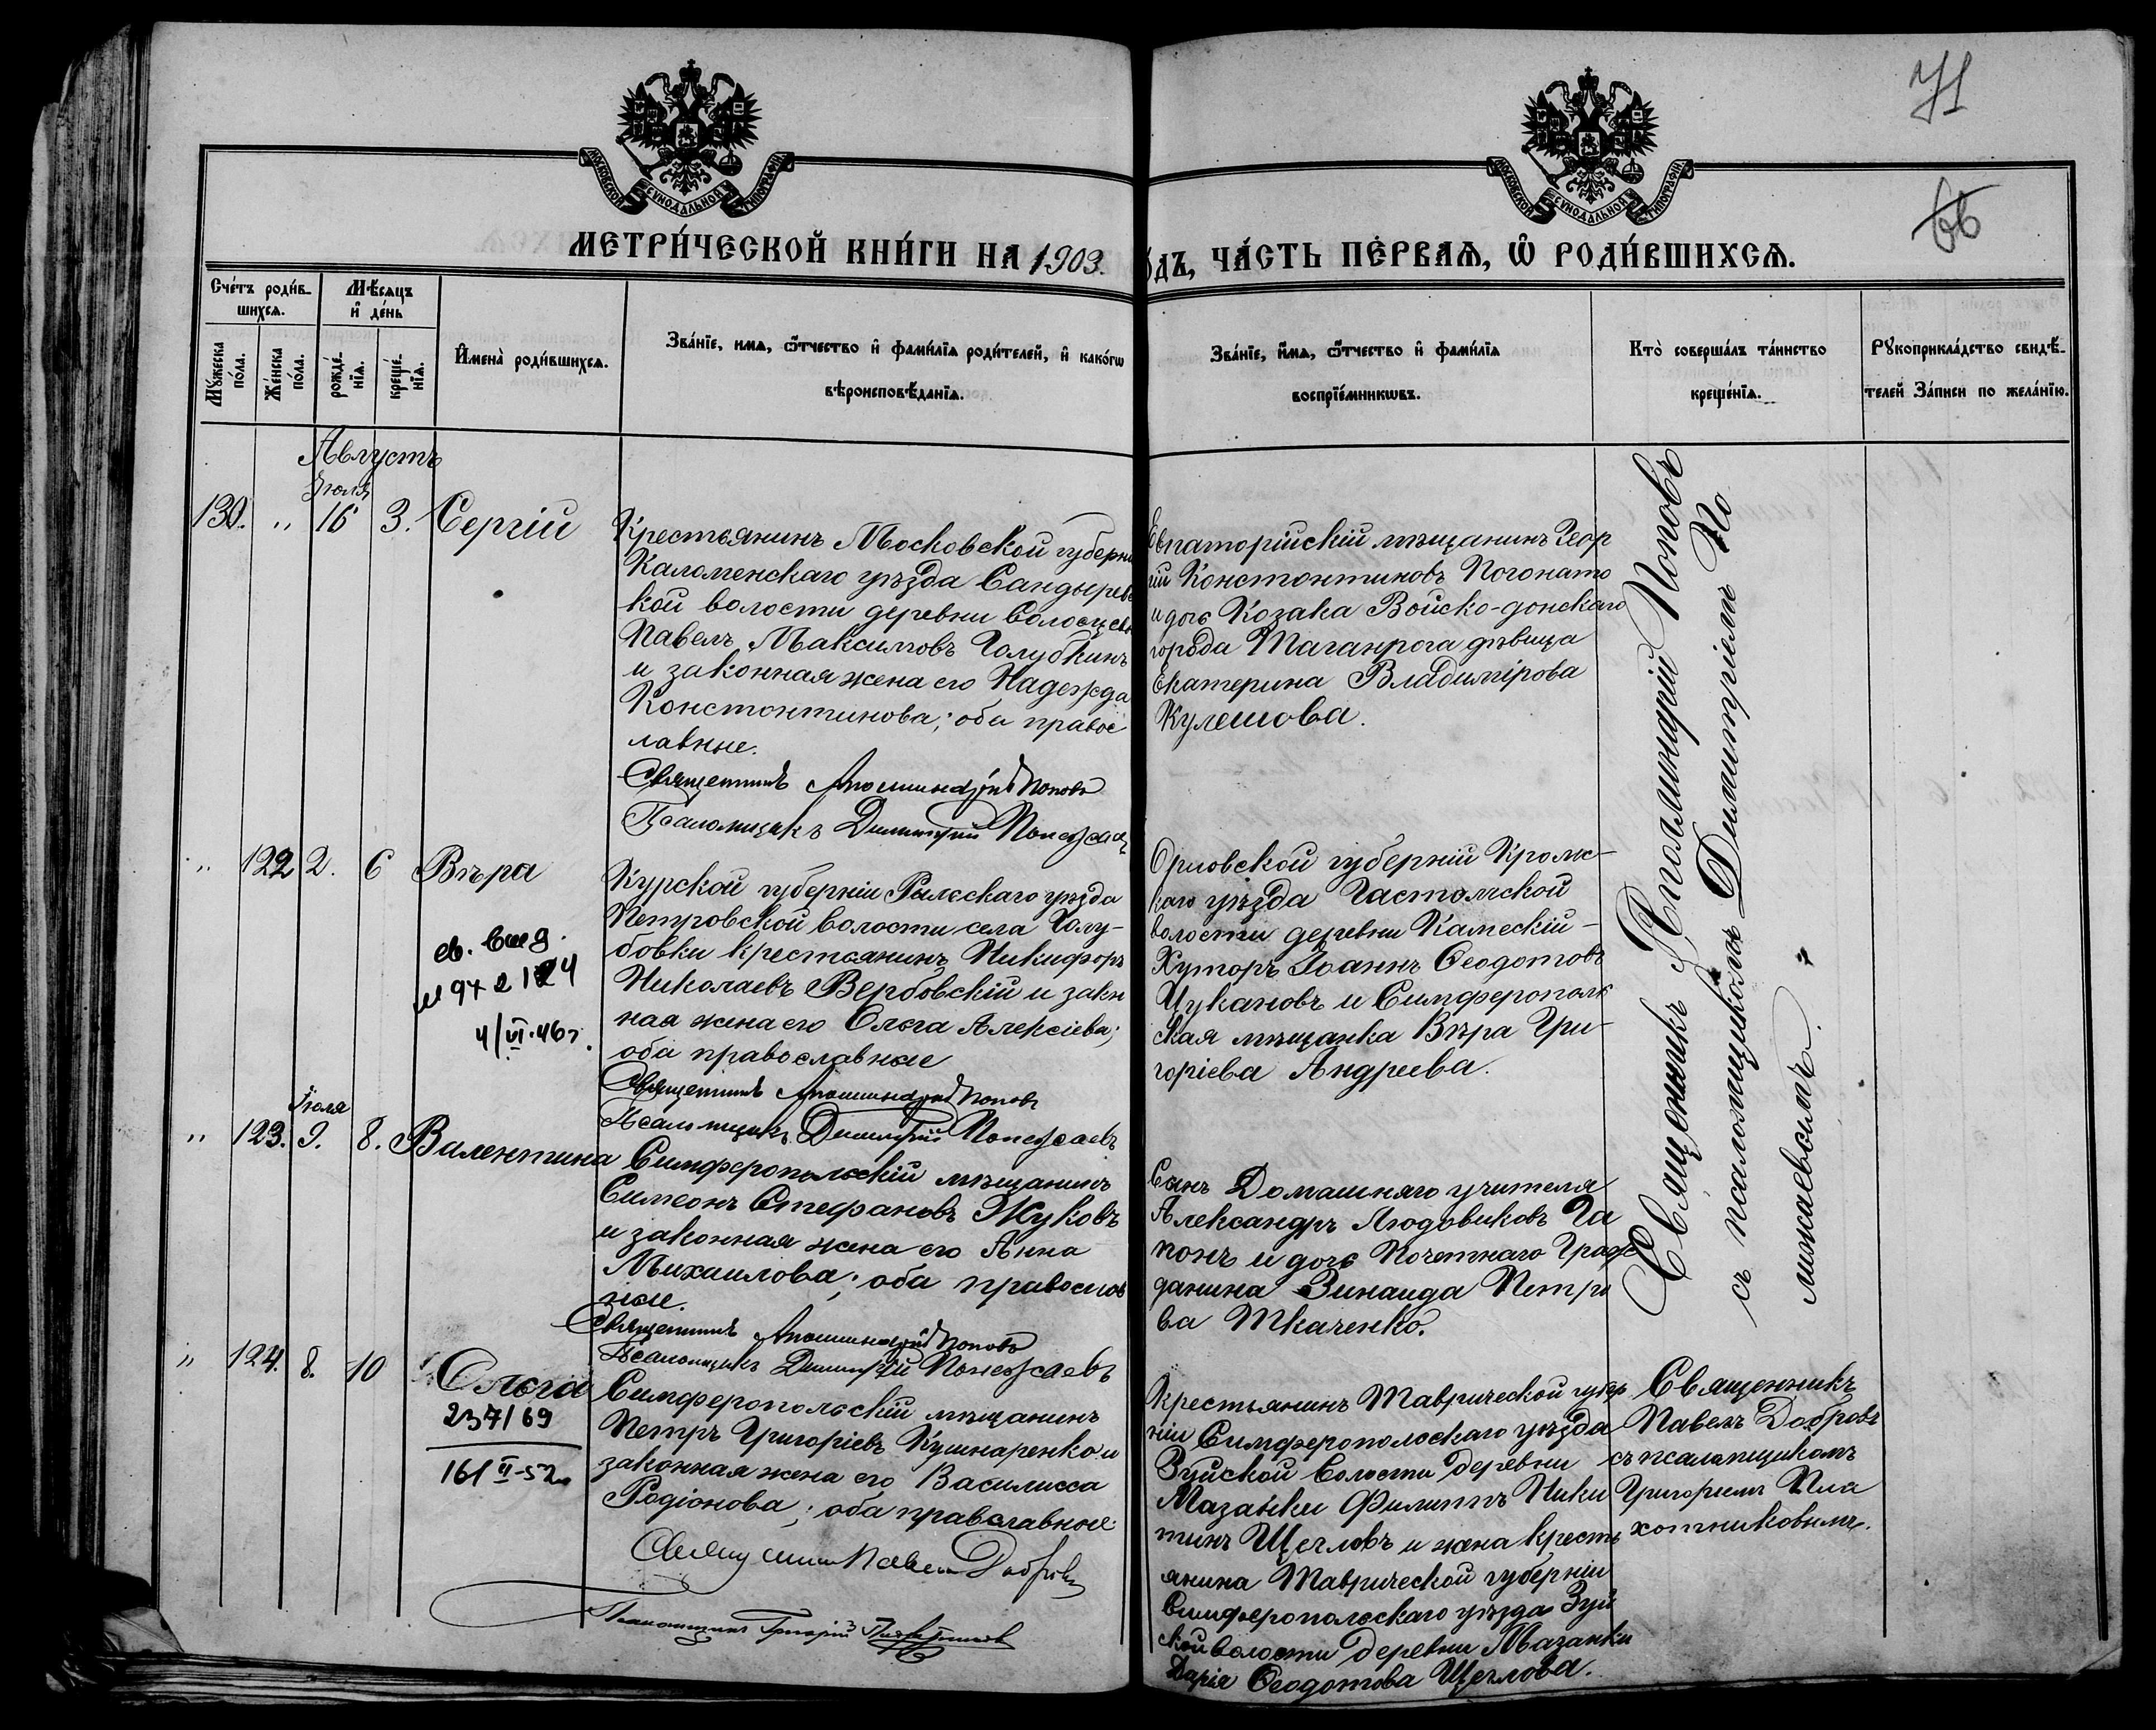 71
66
МОСКОВСКОЙ СѴНОДАЛЬНОЙ ТИПОГРАФІИ
МОСКОВСКОЙ СѴНОДАЛЬНОЙ ТИПОГРАФІИ
МЕТРИ́ЧЕСКОЙ КНИ́ГИ НА 1903.
ѻ́дъ, ЧА́СТЬ ПЕ́РВАѦ, Ѽ РОДИ́ВШИХСѦ.
Сче́тъ роди́в-
шихсѧ.
Мꙋ́жеска по́ла.
Же́нска по́ла.
Мѣ́сѧцъ
и҆ де́нь
рожде́нїѧ.
креще́нїѧ.
И҆мена̀ роди́вшихсѧ.
Зва́нїе, имѧ, ѻ҆́тчество и҆ фами́лїѧ роди́телей, и҆ како́гѡ
вѣроисповѣ́данїѧ.
Зва́нїе, и҆́мѧ, ѻ҆́тчество и҆ фами́лїѧ
воспрїе́мникѡвъ.
Кто̀ соверша́лъ та́инство
креще́нїѧ.
Рꙋкоприкла́дство свидѣ́-
телей За́писи по жела́нїю.
Августъ
Іюля
130. " 16 3. Сергій
Крестьянинъ Московской губерн
Каломенскаго уѣзда Сандырев
кой волости деревни
Павелъ Максимовъ Голубкинъ
и законная жена его Надежда
Констонтинова; оба правос
лавные.
Священникъ Аполлинарій Поповъ
Псаломщикъ Димитрій
Евпаторійскій мѣщанинъ Геор
гій Констонтиновъ Погонато
и дочь Козака Войско-донскаго
города Таганрога дѣвица
Екатерина Владимірова
Кулешова.
" 122 2. 6 Вѣра
св. выд.
942124
4/VI.46г.
Курской губерніи Рыльскаго уѣзда
Петровской волости села Голу-
бовки крестьянинъ Никифоръ
Николаевъ Вербовскій и закн
ная жена его Ольга Алексіева;
оба православные
Священникъ Аполлинарій Поповъ
Псаломщикъ Димитрій Поножаевъ
Орловской губерніи Кромс-
каго уѣзда Гастомской
волости деревни Камескій-
Хуторъ Іоаннъ Ѳеодотовъ
Цукановъ и Симферополь
ская мѣщанка Вѣра Гри-
горіева Андреева.
Іюля
" 123. 9. 8. Валентина
Симферопольскій мѣщанинъ
Симеонъ Стефановъ Жуковъ
и законная жена его Анна
Михаилова; оба православ
ные.
Священникъ Аполлинарій Поповъ
Псаломщикъ Димитрій Поножаевъ
Сынъ Домашняго учителя
Александръ Людовиковъ Га
понъ и дочь Почетнаго Граж
данина Зинаида Петро
ва Ткаченко.
Священникъ Аполлинарій Поповъ
съ псаломщикомъ Димитріемъ По
ножаевымъ.
" 124. 8. 10 Ольга
237/69
161 II-52
Симферопольскій мѣщанинъ
Петръ Григоріевъ Кушнаренко и
законная жена его Василисса
Родіонова; оба православные
Священникъ Павелъ Добровъ
Псаломщикъ Григорій Плахотниковъ
Крестьянинъ Таврической губер
ніи Симферопольскаго уѣзда
Зуйской волости деревни
Мазанки Филиппъ Ники
тинъ Щегловъ и жена кресть
янина Таврической губерніи
Симферопольскаго уѣзда Зуй
ской волости деревни Мазанки
Дарія Ѳеодотова Щеглова.
Священникъ
Павелъ Добровъ
съ псаломщикомъ
Григоріемъ Пла
хотниковымъ.